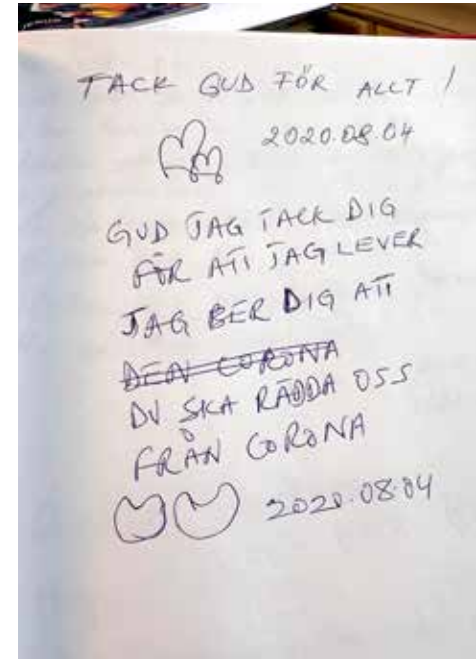 TACK GUD FÖR ALLT !
2020.08.04
GUD JAG TACK DIG
FÖR ATT JAG LEVER
JAG BER DIG ATT
DEN CORONA
DU SKA RÄDDA OSS
FRÅN CORONA
2020.08.04